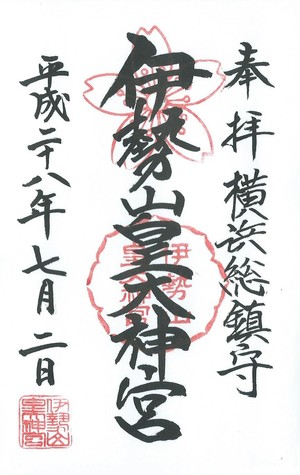 奉拝 横浜総鎮守
伊勢山皇大神宮
伊勢山
皇大神宮
平成二十八年七月二日
伊勢山
皇神宮